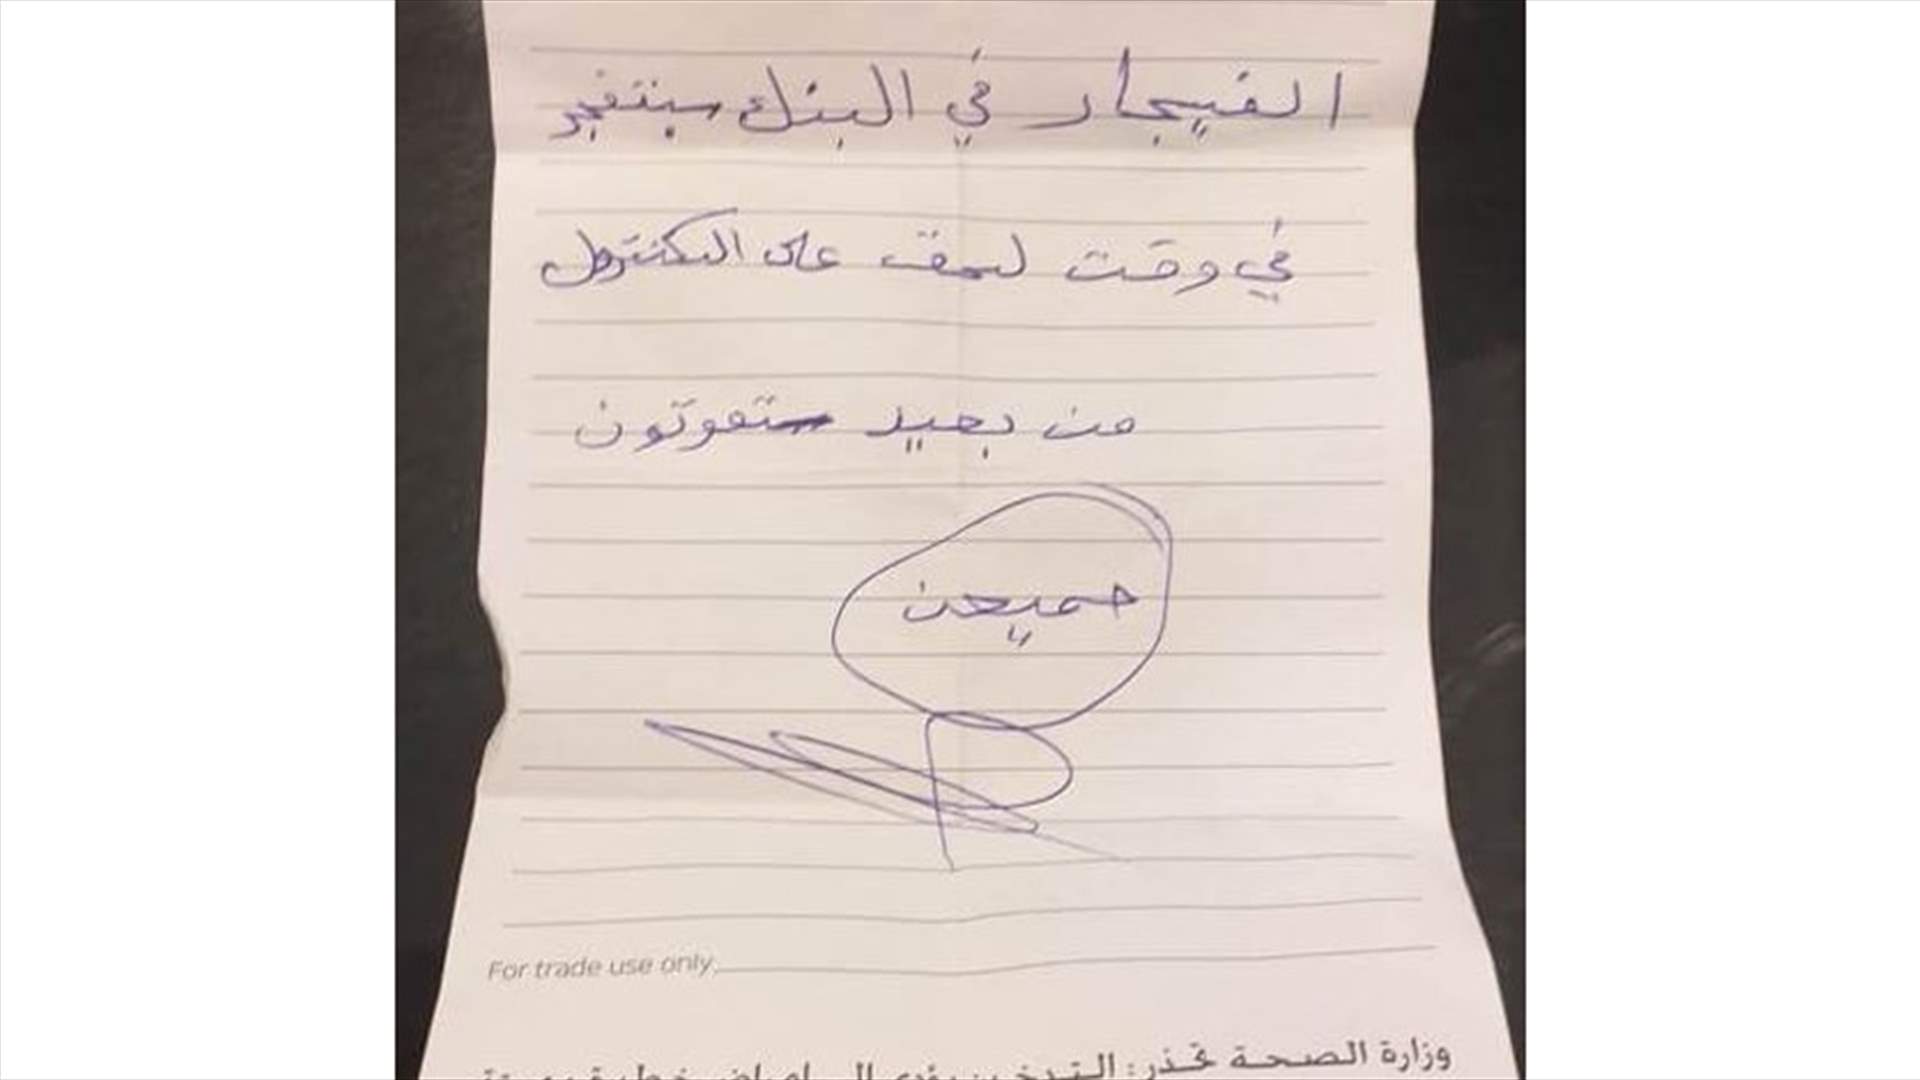 الفيجار في البنك سبنتفجر
في وقت لحق على الكنترول
من بعيد ستموتون
جميعن
For trade use only
وزارة الصحة تحذر: التدخين يؤدي إلى أمراض خطيرة